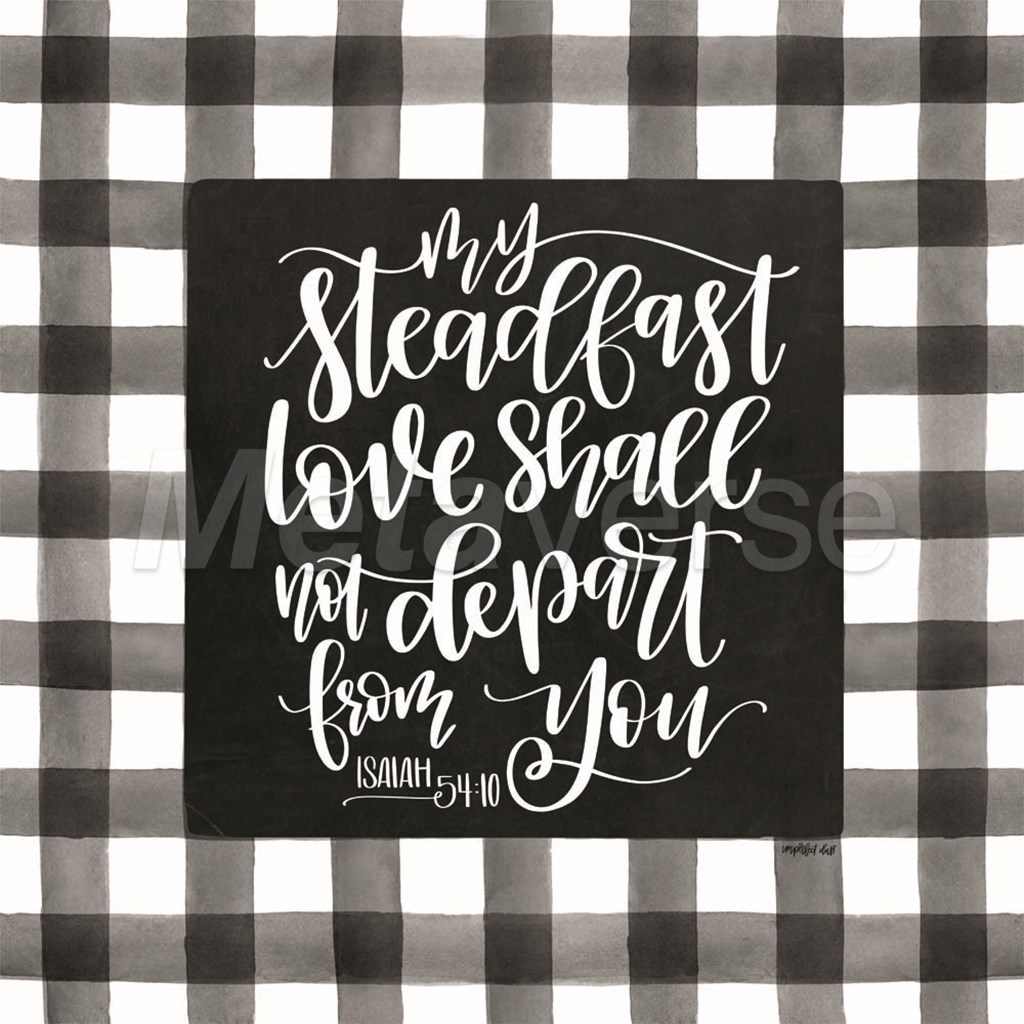 my
steadfast
love shall
not depart
from you
ISAIAH 54:10
imperfect dust
Metaverse